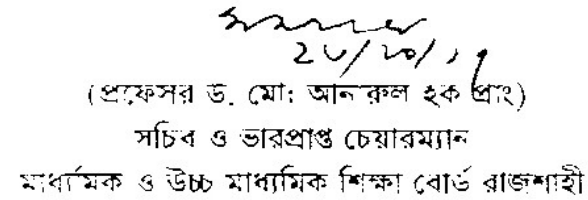 (প্রফেসর ড. মো: আনারুল হক প্রাং)
সচিব ও ভারপ্রাপ্ত চেয়ারম্যান
মাধ্যমিক ও উচ্চ মাধ্যমিক শিক্ষা বোর্ড রাজশাহী